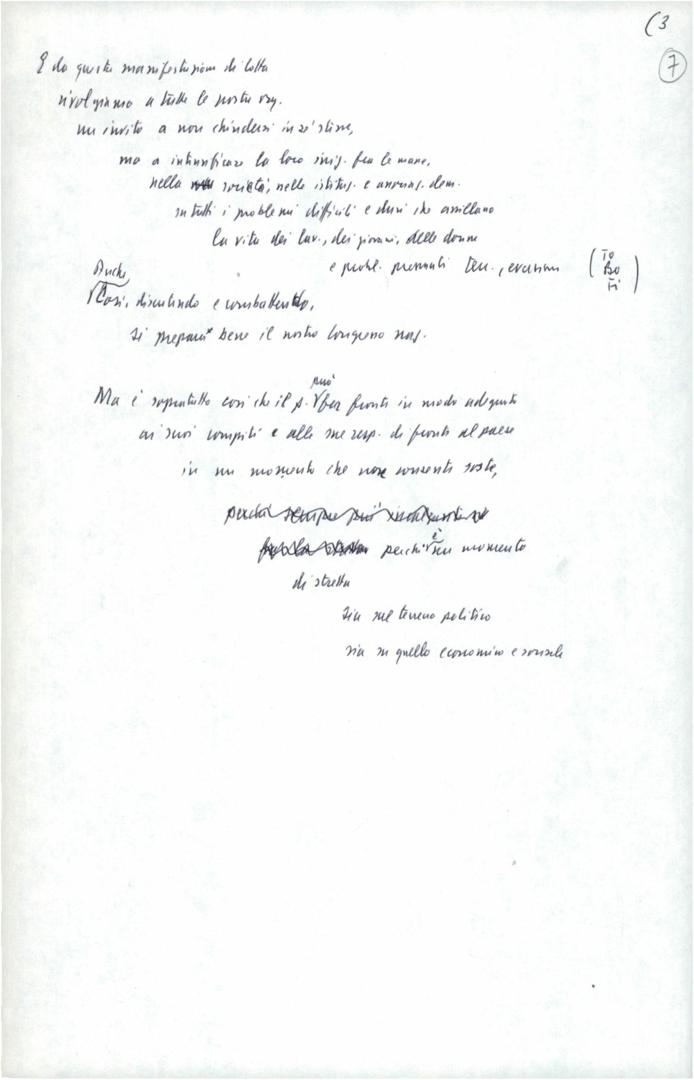 (3
7
E da questa manifestazione di lotta
rivolgiamo a tutte le nostre org.
un invito a non chiudersi in sé stesse,
ma a intensificare la loro iniz. fra le masse,
nella società, nelle istituz. e assem. dem.
su tutti i problemi difficili e duri che assillano
la vita dei lav., dei giovani, delle donne
e probl. pressanti terr., evasioni
(TO
BO
FI)
Anche
Così, discutendo e combattendo,
si prepara bene il nostro congresso naz.
può
Ma è soprattutto così che il p. far fronte in modo adeguato
ai suoi compiti e alle sue resp. di fronte al paese
in un momento che non consente soste,
perché sempre più
perché è un momento
di stretta
sia sul terreno politico
sia su quello economico e sociale